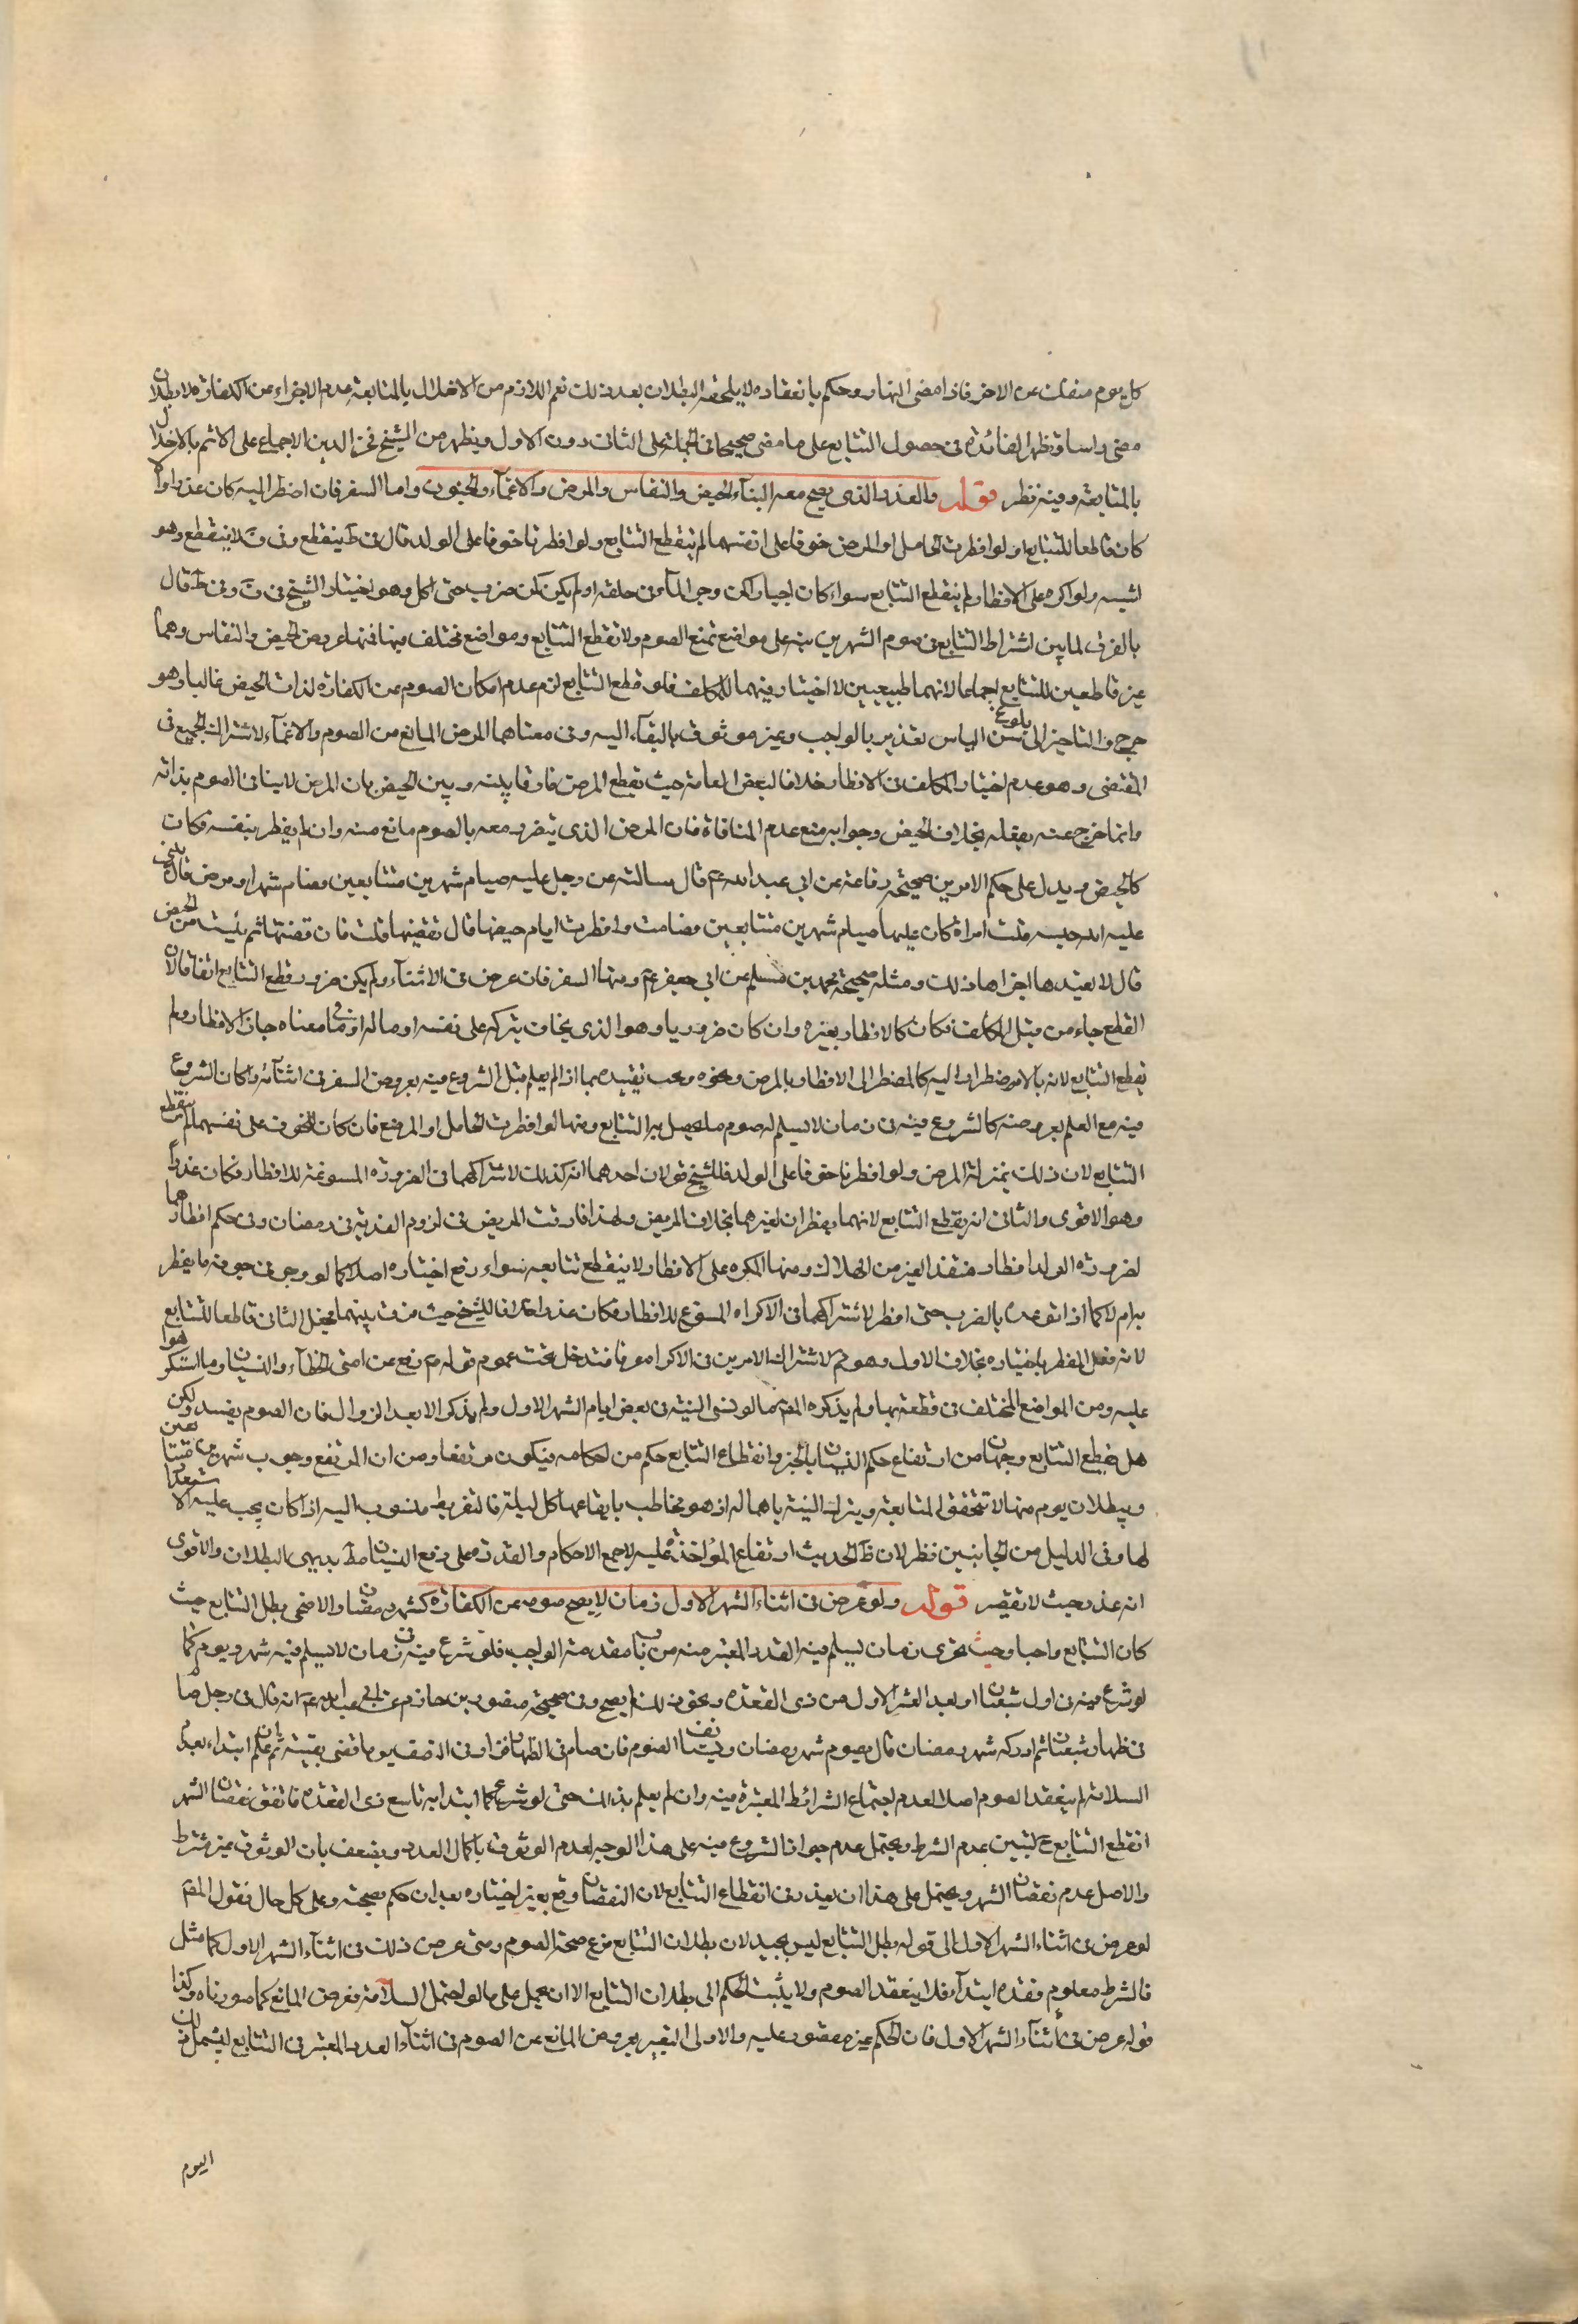 كل يوم منفك عن الاخر فاذا مضى النهار وحكم بانعقاده لا يلحقه البطلان بعد ذلك نعم اللازم من الاخلال بالمتابعة عدم الاجزاء عن الكفارة لا بطلان
مضى راسا وتظهر الفائدة فى حصول التتابع على ما مضى صحيحا فى الجملة على الثانى دون الاول ويظهر من الشيخ فخر الدين الاجماع على الاثم بالاخلال
بالمتابعة وفيه نظر قوله والعذر الذى يصح معه البناء الحيض والنفاس والمرض والاغماء والجنون واما السفر فان اضطر اليه كان عذرا والا
كان قاطعا للتتابع ولو افطرت الحامل او المرضع خوفا على انفسهما لم ينقطع التتابع ولو افطرتا خوفا على الولد قال فى ط ينقطع وفى ف لا ينقطع وهو
اشبه ولو اكره على الافطار لم ينقطع التتابع سواء كان اجبارا كمن وجر الماء فى حلقه او لم يكن كمن ضرب حتى اكل وهو اختيار الشيخ فى ف وفى ط قال
بالفرق لما بين اشتراط التتابع فى صوم الشهرين نبه على مواضع تمنع الصوم ولا تقطع التتابع ومواضع مختلف فيها فمنها عروض الحيض والنفاس وهما
غير قاطعين للتتابع اجماعا لانهما طبيعيين لا اختيار فيهما للمكلف فلو قطع التتابع لزم عدم امكان الصوم عن الكفارة لذات الحيض غالبا وهو
حرج والتاخير الى بلوغ سن الياس تغرير بالواجب وغير موثوق بالبقاء اليه وفى معناهما المرض المانع من الصوم والاغماء لاشتراك الجميع فى
المقتضى وهو عدم اختيار المكلف فى الافطار خلافا لبعض العامة حيث يقطع المرض فارقا بينه وبين الحيض بان المرض لا ينافى الصوم بذاته
وانما خرج عنه بفعله بخلاف الحيض وجوابه منع عدم المنافاة فان المرض الذى يتضرر معه بالصوم مانع منه وان لم يفطر بنفسه فكان
كالحيض ويدل على حكم الامرين صحيحة رفاعة عن ابى عبد الله ع قال سالته عن رجل عليه صيام شهرين متتابعين فصام شهرا ومرض قال يبنى
عليه الله حبسه قلت امراة كان عليها صيام شهرين متتابعين فصامت وافطرت ايام حيضها قال تقضيها قلت فان قضتها ثم يئست من الحيض
قال لا تعيدها اجزاها ذلك ومثله صحيحة محمد بن مسلم عن ابى جعفر ع ومنها السفر فان عرض فى الاثناء ولم يكن ضرور قطع التتابع اتفاقا لان
القطع جاء من قبل المكلف فكان كالافطار بغيره وان كان ضروريا وهو الذى يخاف بتركه على نفسه او ماله او ما فى معناه جاز الافطار ولم
يقطع التتابع لانه بالاضطرار اليه كالمضطر الى الافطار بالمرض ونحوه ويجب تقييده بما اذا لم يعلم قبل الشروع فيه بعروض السفر فى اثنائه والا كان الشروع
فيه مع العلم بعروضه كالشروع فيه فى زمان لا يسلم له صوم ما يحصل به التتابع ومنها لو افطرت الحامل او المرضع فان كان الخوف على نفسهما لم ينقطع
التتابع لان ذلك بمنزلة المرض ولو افطرتا خوفا على الولد فللشيخ قولان احدهما انه كذلك لاشتراكهما فى الضرورة المسوغة للافطار فكان عذرا
وهو الاقوى والثانى انه يقطع التتابع لانهما يفطران لغيرهما بخلاف المريض ولهذا فارقت المريض فى لزوم الفدية فى رمضان وفى حكم افطارهما
لضرورة الولد افطار منقذ الغير من الهلاك ومنها المكره على الافطار لا ينقطع تتابعه سواء رفع اختياره اصلا كما لو وجر فى جوفه ما يفطر
به ام لا كما اذا توعده بالضرب حتى افطر لاشتراكهما فى الاكراه المسوغ للافطار فكان عذرا خلافا للشيخ حيث فرق بينهما فجعل الثانى قاطعا للتتابع
لانه فعل المفطر باختياره بخلاف الاول وهو م لاشتراك الامرين فى الاكراه عرفا فتدخل تحت عموم قوله ص رفع عن امتى الخطاء والنسيان وما استكرهوا
عليه ومن المواضع المختلف فى قطعه بها ولم يذكره المص ما لو نسى النية فى بعض ايام الشهر الاول ولم يذكر الا بعد الزوال فان الصوم يفسد ولكن
هل يقطع التتابع وجهان من ارتفاع حكم النسيان بالخبر وانقطاع التتابع حكم من احكامه فيكون مرتفعا ومن ان المرتفع وجوب شهرين متتابعين
وببطلان يوم منها لا تتحقق المتابعة ويترك النية باهماله اذ هو مخاطب بايقاعها كل ليلة فالتفريط منسوب اليه اذا كان يجب عليه الاستشعار
لها وفى الدليل من الجانبين نظر لان ظ الحديث ارتفاع المؤاخذة عليه لا جميع الاحكام والقدرة على دفع النسيان مط بديهى البطلان والاقوى
انه عذر حيث لا تقصير قوله ولو عرض فى اثناء الشهر الاول زمان لا يصح صومه عن الكفارة كشهر رمضان والاضحى بطل التتابع حيث
كان التتابع واجبا وجب تحرى زمان يسلم فيه القدر المعتبر منه من باب مقدمة الواجب فلو شرع فيه فى زمان لا يسلم فيه شهر ويوم كما
لو شرع فيه فى اول شعبان او بعد العشر الاول من ذى القعدة ونحو ذلك لم يصح وفى صحيحة منصور بن حازم عن ابى عبد الله ع انه قال فى رجل صام
فى ظهار شعبان ثم ادركه شهر رمضان قال يصوم شهر رمضان ويستانف الصوم فان صام فى الظهار فزاد فى النصف يوما قضى بقيته ثم علم ابتداء بعدم
السلامة لم ينعقد الصوم اصلا لعدم اجتماع الشرائط المعتبرة فيه وان لم يعلم بذلك حتى لو شرع كما ابتدا به تاسع ذى القعدة فاتفق نقصان الشهر
انقطع التتابع ح لتبين عدم الشرط ويحتمل عدم جواز الشروع فيه على هذا الوجه لعدم الوثوق باكمال العدد ويضعف بان الوثوق غير شرط
والاصل عدم نقصان الشهر ويحتمل على هذا ان يعذر فى انقطاع التتابع لان النقصان وقع بغير اختياره بعد ان حكم بصحته وعلى كل حال فقول المص
لو عرض فى اثناء الشهر الاول الى قوله بطل التتابع ليس بجيد لان بطلان التتابع فرع صحة الصوم ومتى عرض ذلك فى اثناء الشهر الاول كما مثل
فالشرط معلوم فقده ابتداء فلا ينعقد الصوم ولا يثبت الحكم الى بطلان التتابع الا ان يحمل على ما لو احتمل السلامة فعرض المانع كما صورناه وكذا
قوله عرض فى اثناء الشهر الاول فان الحكم غير مقصور عليه والاولى التعبير بعروض المانع عن الصوم فى اثناء العدد المعتبر فى التتابع ليشمل ذلك
اليوم